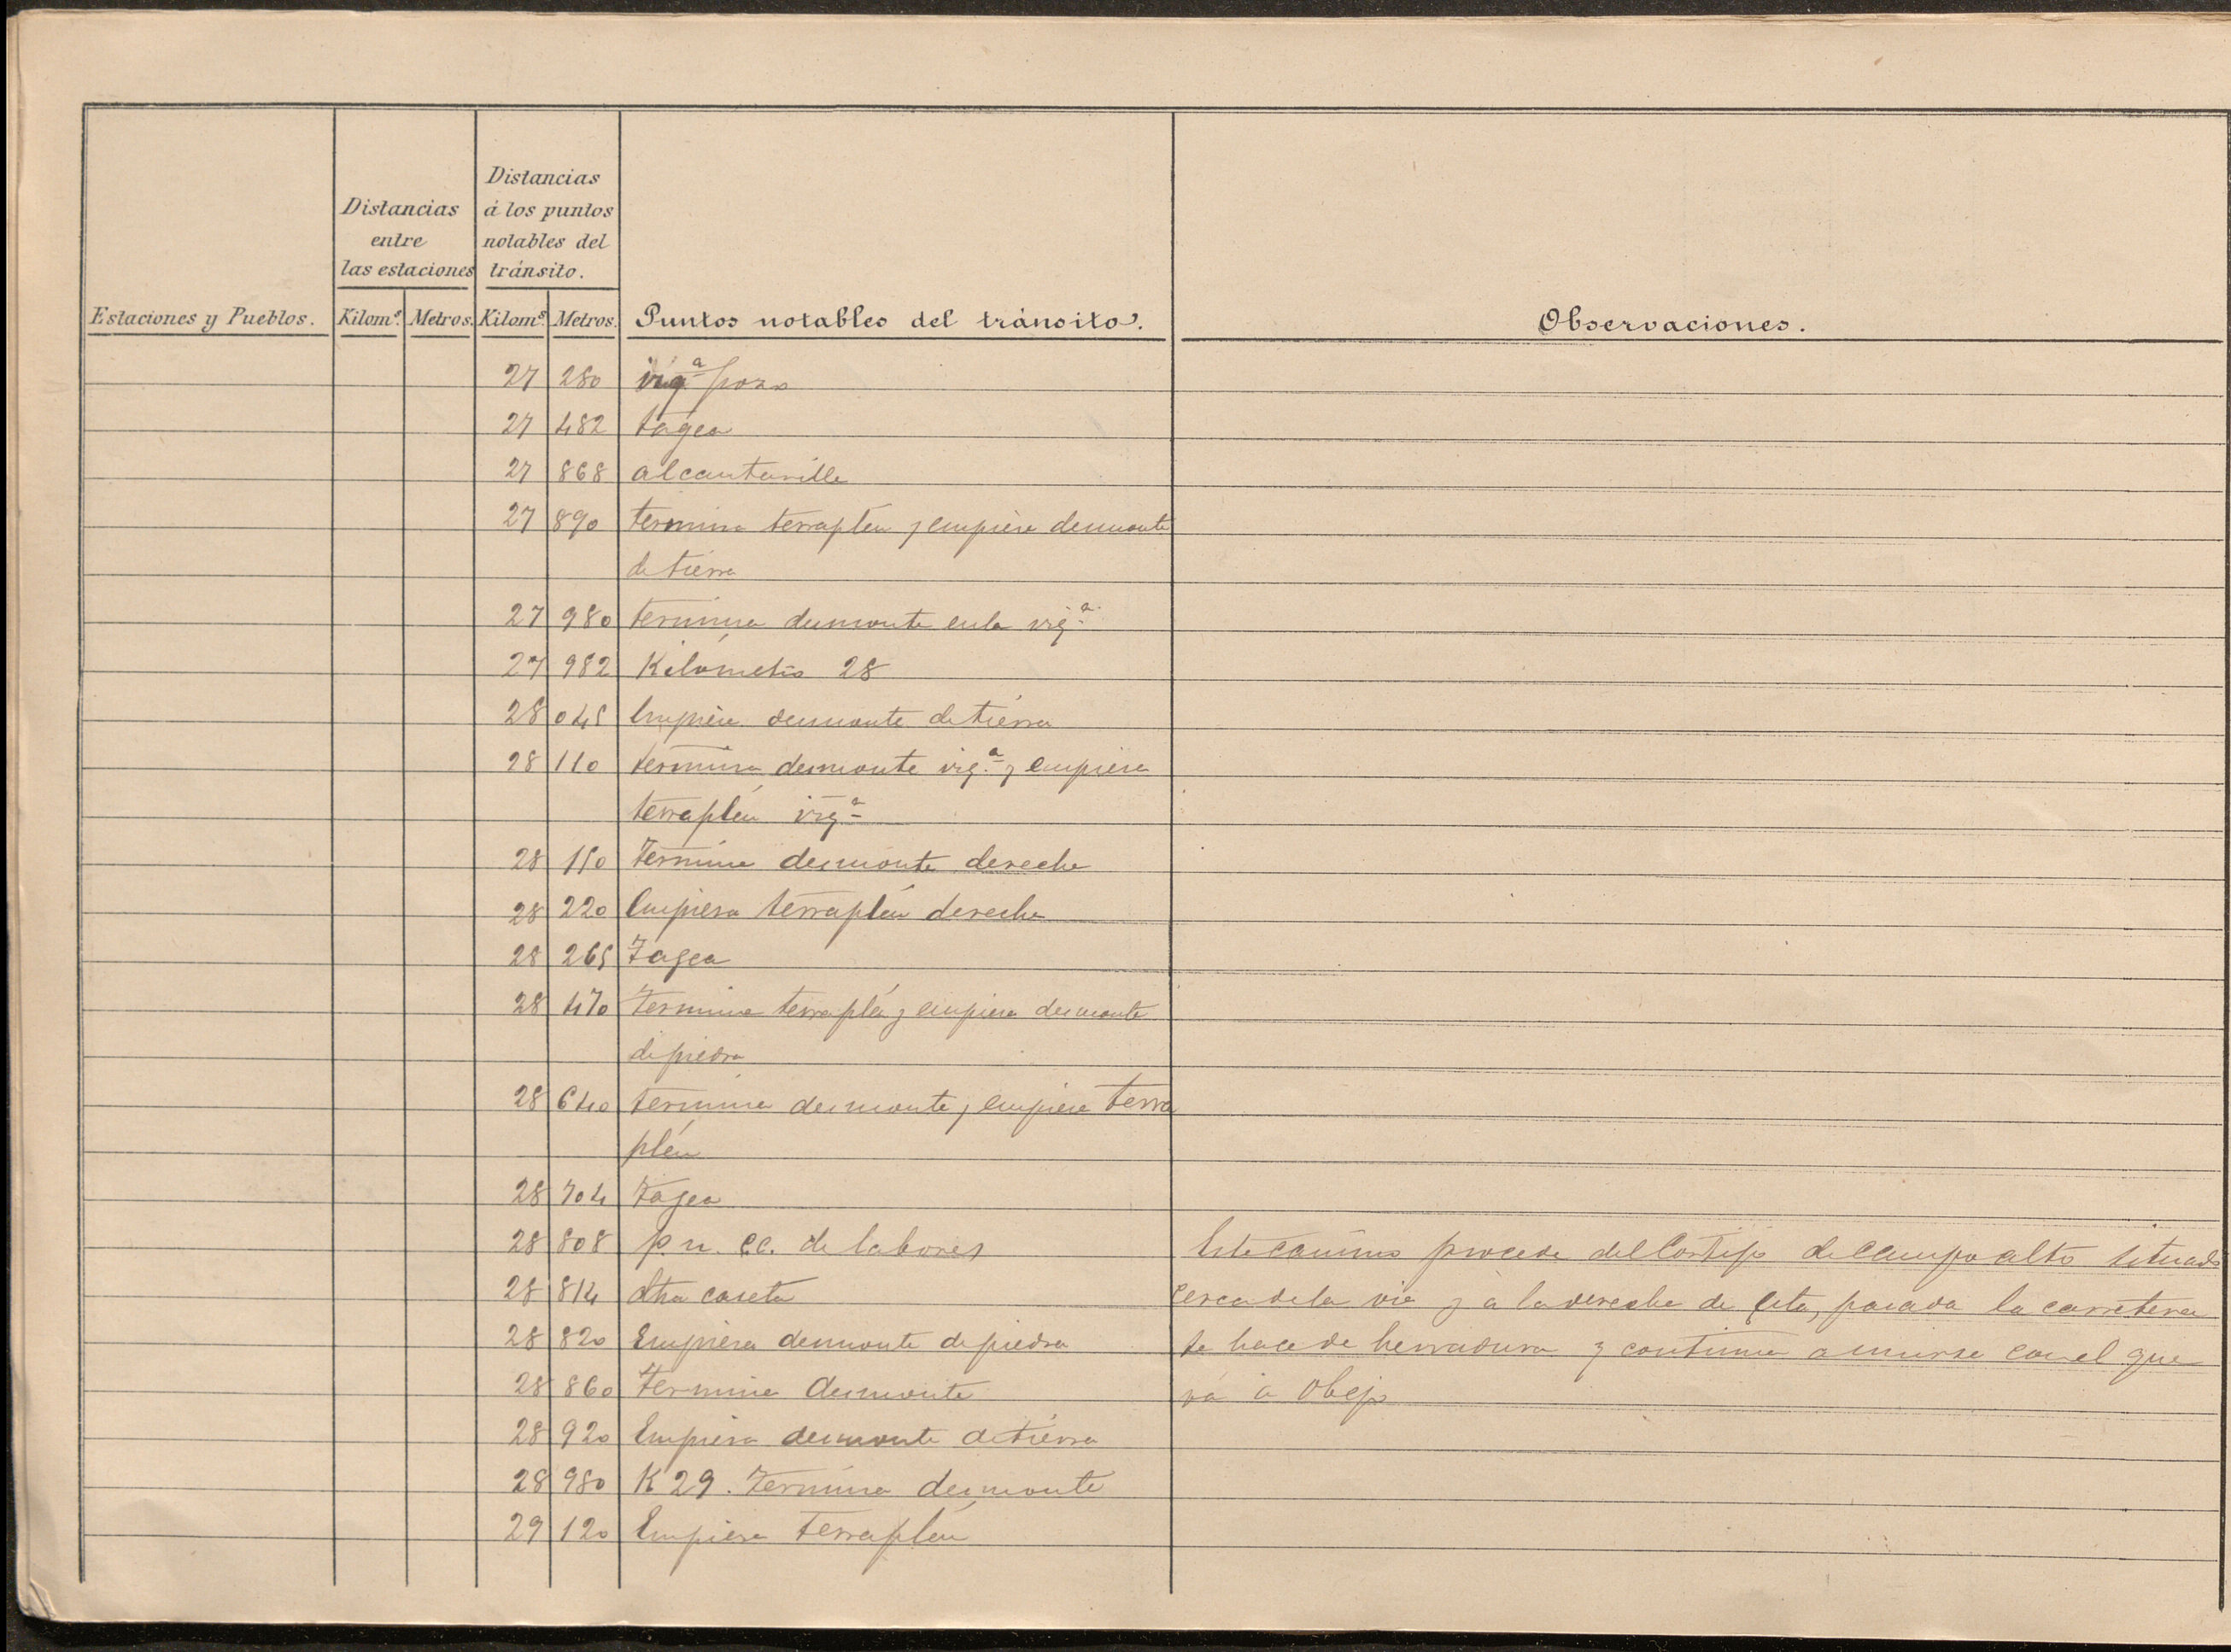 Distancias
Distancias á los puntos
entre notables del
las estaciones tránsito.
Estaciones y Pueblos. Kilomˢ. Metros. Kilomˢ. Metros. Puntos notables del tránsito. Observaciones.
27 280 izqª pozo
27 482 tagea
27 868 alcantarilla
27 890 termina terraplén y empieza desmonte
de tierra
27 980 termina desmonte en la izqª
27 982 Kilómetro 28
28 045 Empieza desmonte de tierra
28 110 termina desmonte izq.ª y empieza
terraplén izqª
28 150 Termina desmonte derecha
28 220 Empieza terraplén derecha
28 265 Tagea
28 470 Termina terraplén y empieza desmonte
de piedra
28 640 termina desmonte y empieza terra
plén
28 704 Tagea
28 808 p. n. cc. de labores Este camino procede del Cortijo de Campo alto situado
28 814 Otra caseta cerca de la via y á la derecha de esta, pasada la carretera
28 820 Empieza desmonte de piedra se hace de herradura y continua a unirse con el que
28 860 Termina desmonte vá á Obejo
28 920 Empieza desmonte de tierra
28 980 K 29. Termina desmonte
29 120 Empieza Terraplén